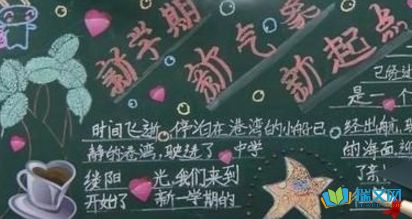 新学期
新气象
新起点
已经过
是一个
时间飞逝,停泊在港湾的小船已经出航,
静的港湾,驶进了中学的海面
缕阳光,我们来到了
开始了新一学期的